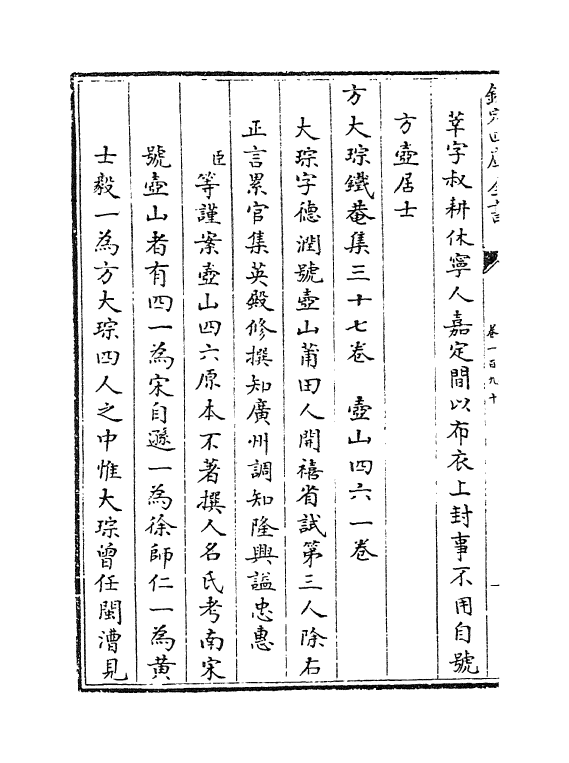 欽定四庫全書
卷一百九十
莘字叔耕休寧人嘉定間以布衣上封事不用自號
方壺居士
方大琮鐵菴集三十七卷　壺山四六一卷
大琮字德潤號壺山莆田人開禧省試第三人除右
正言累官集英殿修撰知廣州調知隆興謚忠惠
臣等謹案壺山四六原本不著撰人名氏考南宋
號壺山者有四一為宋自遜一為徐師仁一為黃
士毅一為方大琮四人之中惟大琮曾任閩漕見